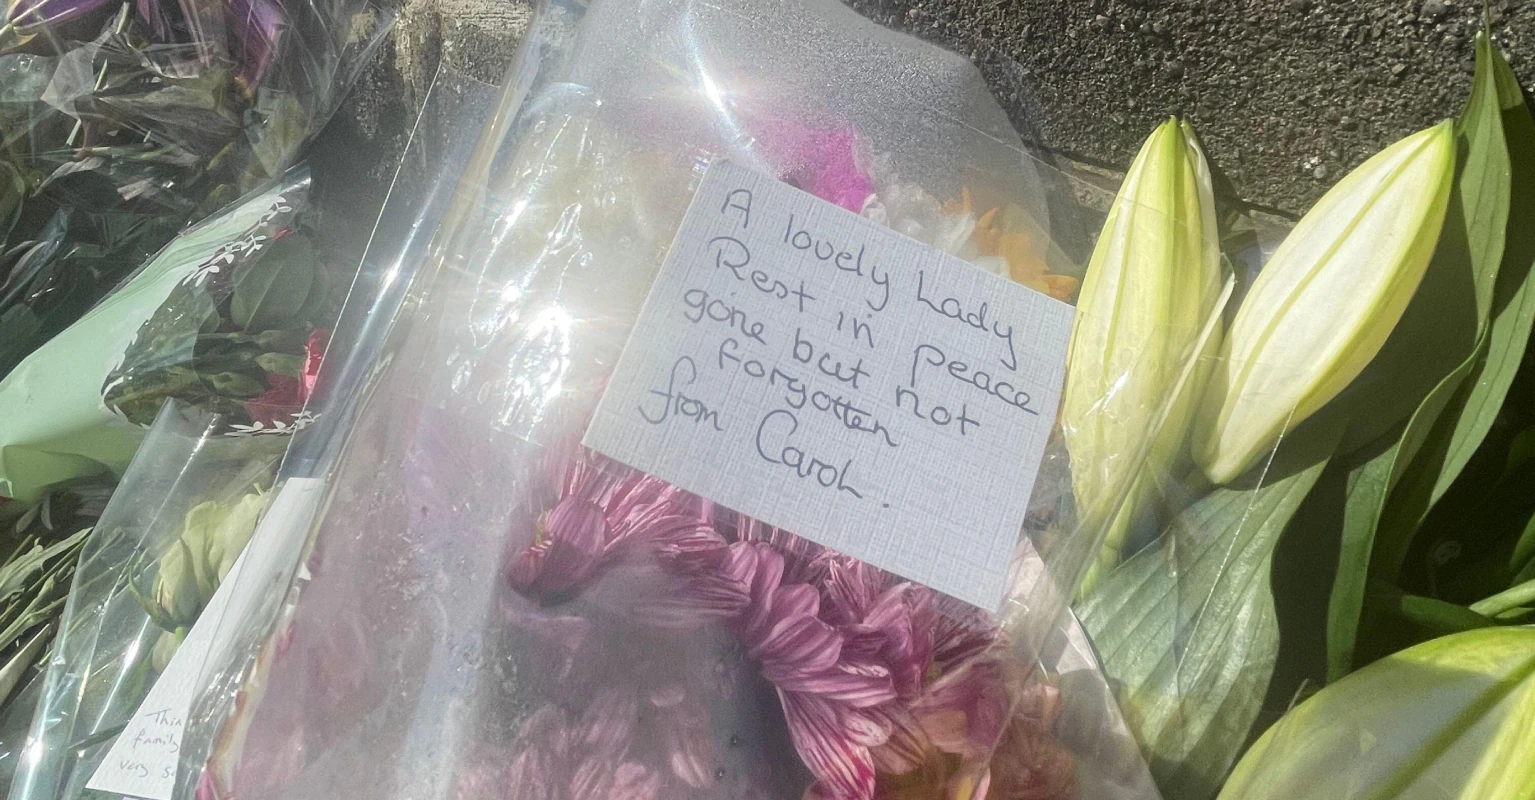 A lovely Lady
Rest in peace
gone but not
forgotten
from Carol.
family
very